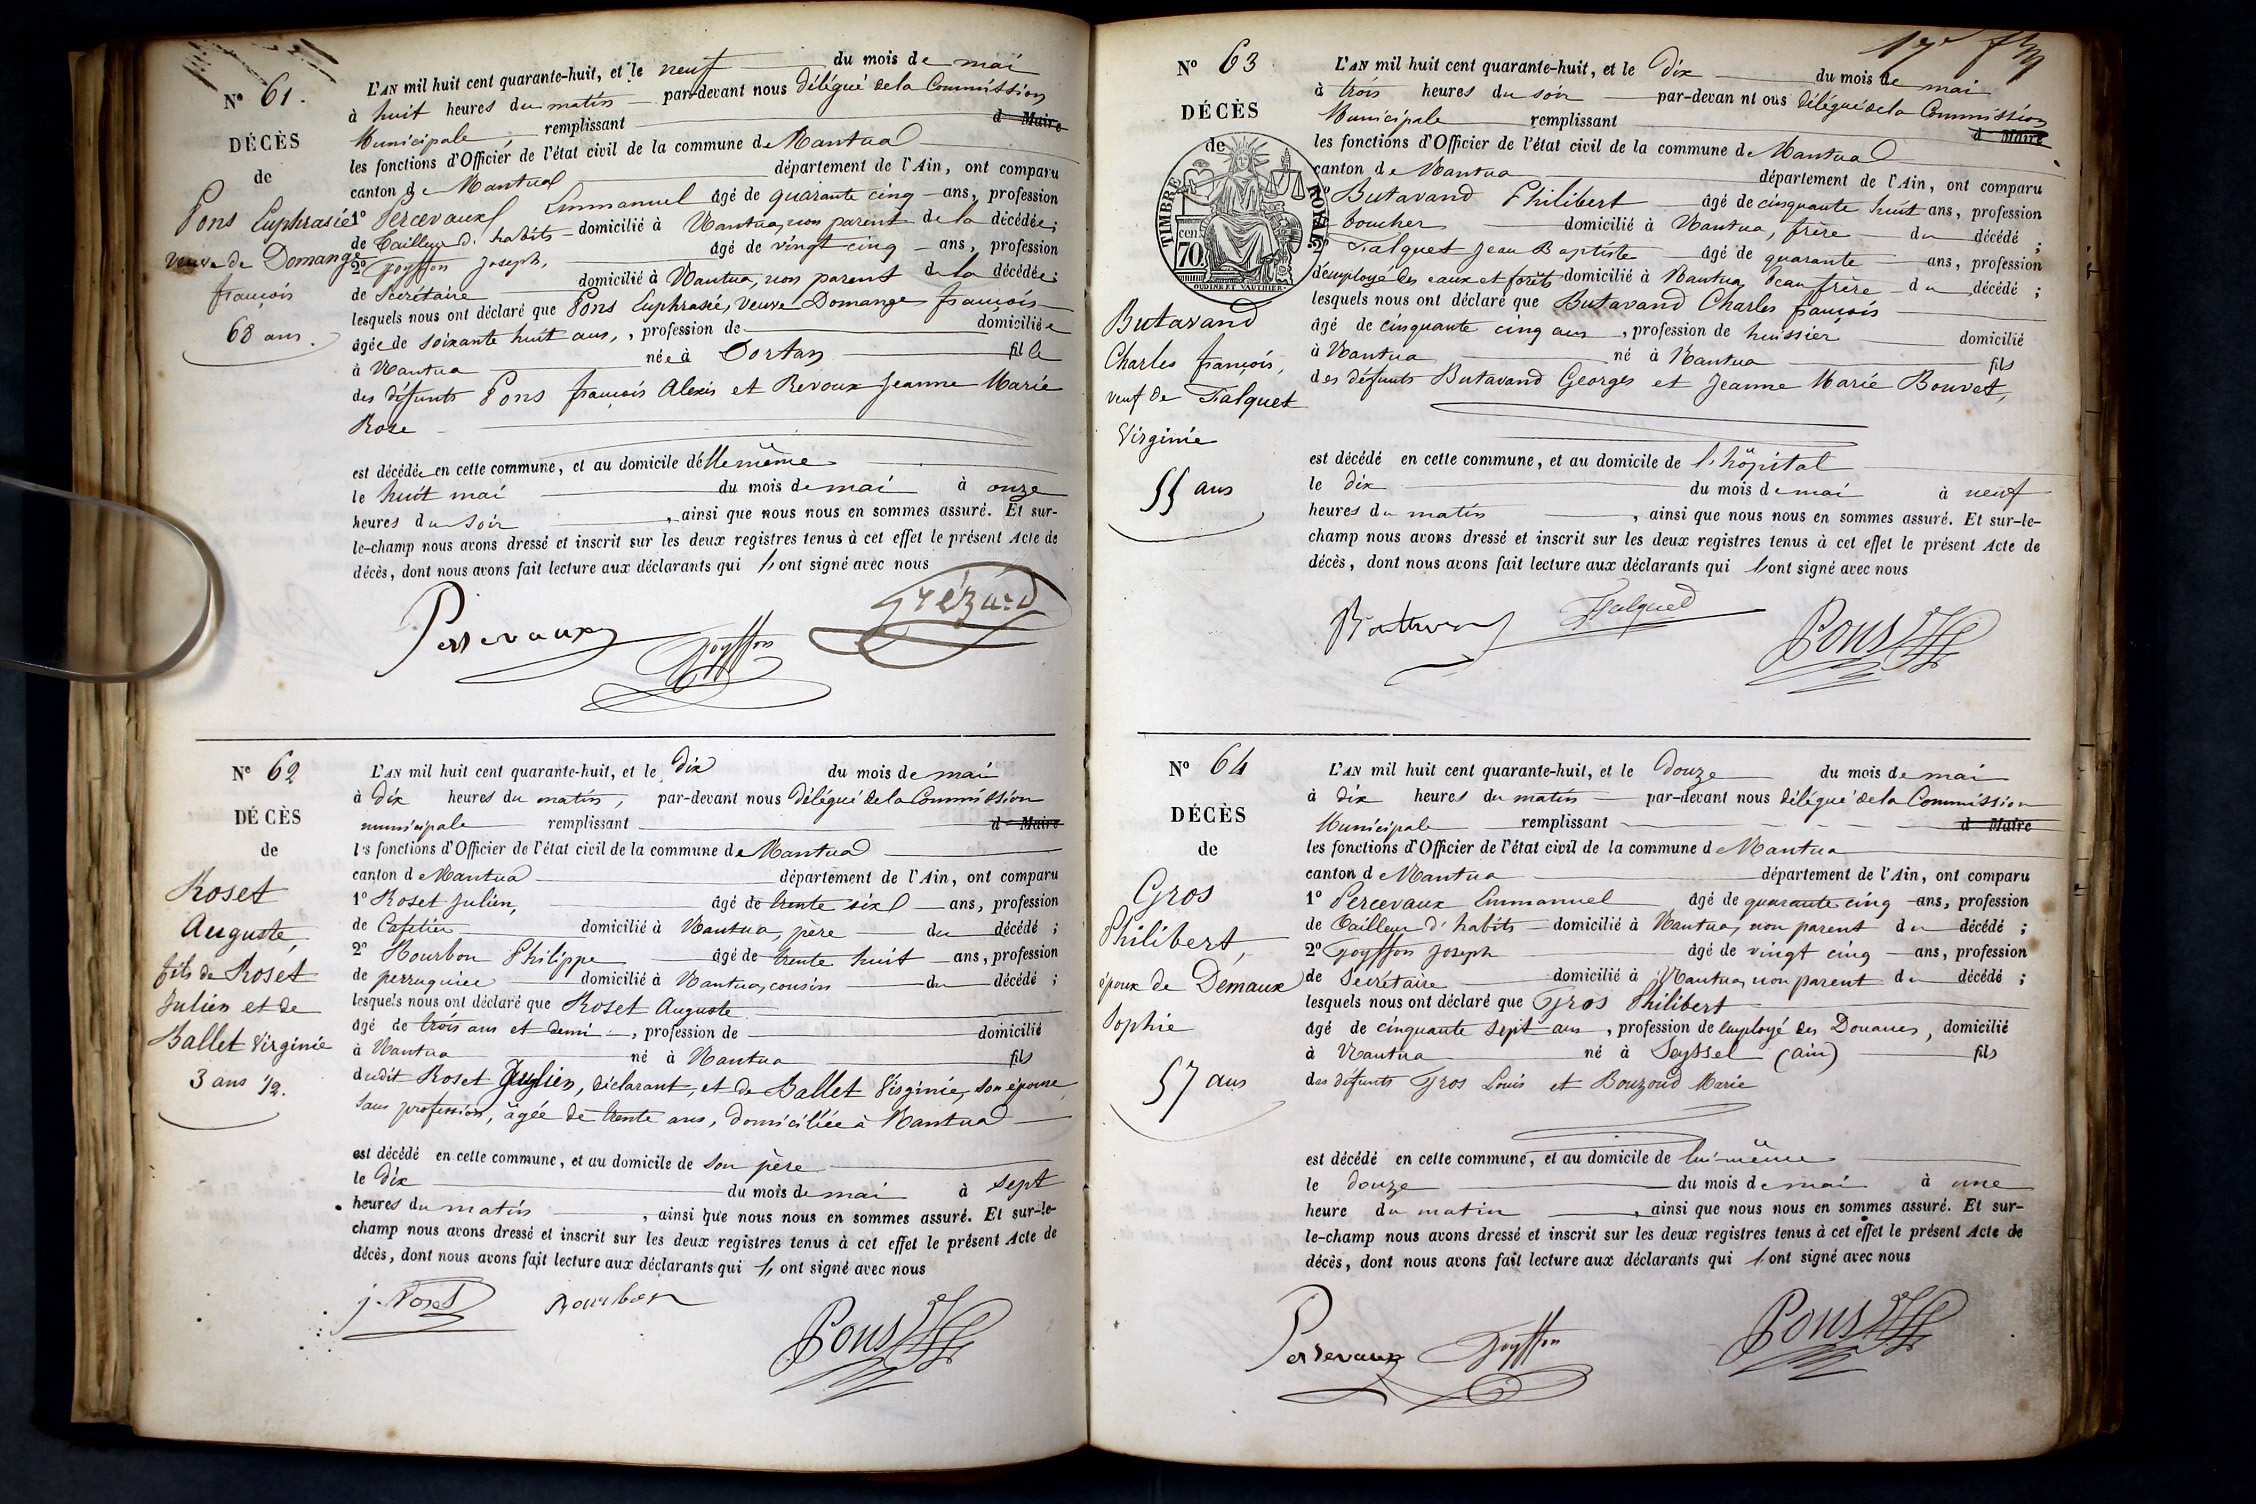 N° 61.
DÉCÈS
de
Pons Euphrasie
veuve de Domange
françois
68 ans.
L'AN mil huit cent quarante-huit, et le neuf du mois de mai
à huit heures du matin par-devant nous délégué de la Commission
Municipale remplissant d Maire
les fonctions d'Officier de l'état civil de la commune de Nantua
canton de Nantua département de l'Ain, ont comparu
1° Percevaux Emmanuel âgé de quarante cinq ans, profession
de Tailleur d'habits domicilié à Nantua, non parent de la décédée;
2° Goyffon Joseph, âgé de vingt cinq ans, profession
de Secrétaire domicilié à Nantua, non parent de la décédée;
lesquels nous ont déclaré que Pons Euphrasie, veuve Domange françois
âgée de soixante huit ans, , profession de domiciliée
à Nantua née à Dortan fille
des défunts Pons françois Alexis et Revoux Jeanne Marie
Rose
est décédée en cette commune, et au domicile d'ellemême
le huit mai du mois de mai à onze
heures du soir , ainsi que nous nous en sommes assuré. Et sur-
le-champ nous avons dressé et inscrit sur les deux registres tenus à cet effet le présent Acte de
décès, dont nous avons fait lecture aux déclarants qui l'ont signé avec nous
Persevaux Goyffon Grézard
N° 62
DÉCÈS
de
Roset
Auguste,
fils de Roset
Julien et de
Ballet Virginie
3 ans 1/2.
L'AN mil huit cent quarante-huit, et le dix du mois de mai
à dix heures du matin, par-devant nous délégué de la Commission
municipale remplissant d Maire
les fonctions d'Officier de l'état civil de la commune de Nantua
canton de Nantua département de l'Ain, ont comparu
1° Roset Julien, âgé de trente six ans, profession
de Cafetier domicilié à Nantua, père du décédé;
2° Bourbon Philippe âgé de trente huit ans, profession
de perruquier domicilié à Nantua, cousin du décédé;
lesquels nous ont déclaré que Roset Auguste
âgé de trois ans et demi , profession de domicilié
à Nantua né à Nantua fils
dudit Roset Julien, déclarant, et de Ballet Virginie, son épouse,
sans profession, âgée de trente ans, domiciliée à Nantua
est décédé en cette commune, et au domicile de son père
le dix du mois de mai à sept
heures du matin , ainsi que nous nous en sommes assuré. Et sur-le-
champ nous avons dressé et inscrit sur les deux registres tenus à cet effet le présent Acte de
décès, dont nous avons fait lecture aux déclarants qui l'ont signé avec nous
j. Roset Bourbon Pons
N° 63
DÉCÈS
de
TIMBRE ROYAL
70 cen
OUDINE ET VAUTHIER
Butavand
Charles françois,
veuf de Falquet
Virginie
55 ans
L'AN mil huit cent quarante-huit, et le dix du mois de mai
à trois heures du soir par-devan nt ous délégué de la Commission
Municipale remplissant d Maire
les fonctions d'Officier de l'état civil de la commune de Nantua
canton de Nantua département de l'Ain, ont comparu
1° Butavand Philibert âgé de cinquante huit ans, profession
boucher domicilié à Nantua, frère du décédé;
2° Falquet Jean Baptiste âgé de quarante ans, profession
d'employé des eaux et forêts domicilié à Nantua, beau frère du décédé;
lesquels nous ont déclaré que Butavand Charles françois
âgé de cinquante cinq ans , profession de huissier domicilié
à Nantua né à Nantua fils
des défunts Butavand Georges et Jeanne Marie Bouvet,
est décédé en cette commune, et au domicile de l'hôpital
le dix du mois de mai à neuf
heures du matin , ainsi que nous nous en sommes assuré. Et sur-le-
champ nous avons dressé et inscrit sur les deux registres tenus à cet effet le présent Acte de
décès, dont nous avons fait lecture aux déclarants qui l'ont signé avec nous
Falquet Pons
N° 64
DÉCÈS
de
Gros
Philibert,
époux de Demaux
Sophie
57 ans
L'AN mil huit cent quarante-huit, et le douze du mois de mai
à dix heures du matin par-devant nous délégué de la Commission
Municipale remplissant d Maire
les fonctions d'Officier de l'état civil de la commune de Nantua
canton de Nantua département de l'Ain, ont comparu
1° Percevaux Emmanuel âgé de quarante cinq ans, profession
de Tailleur d'habits domicilié à Nantua, non parent du décédé;
2° Goyffon Joseph âgé de vingt cinq ans, profession
de Secrétaire domicilié à Nantua, non parent du décédé;
lesquels nous ont déclaré que Gros Philibert
âgé de cinquante sept ans , profession de employé des Douanes, domicilié
à Nantua né à Seyssel (ain) fils
des défunts Gros Louis et Bouzoud Marie
est décédé en cette commune, et au domicile de lui-même
le douze du mois de mai à une
heure du matin , ainsi que nous nous en sommes assuré. Et sur-
le-champ nous avons dressé et inscrit sur les deux registres tenus à cet effet le présent Acte de
décès, dont nous avons fait lecture aux déclarants qui l'ont signé avec nous
Persevaux Goyffon Pons